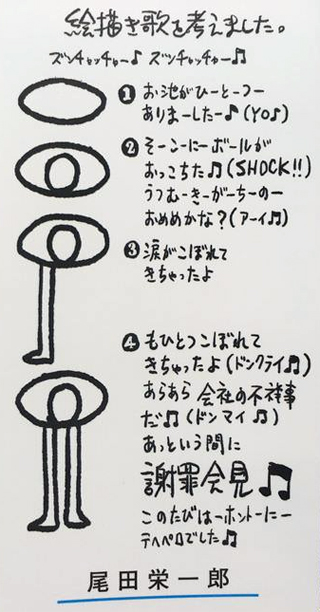 絵描き歌を考えました。
ズンチャッチャ〜♪ ズンチャッチャ〜♫
❶ お池がひーとーつー
ありまーしたー♪(YO♪)
❷ そーこーにーボールが
おっこちた♫(SHOCK!!)
うつむーきーがーちーのー
おめめかな?(アーイ♫)
❸ 涙がこぼれて
きちゃったよ
❹ もひとつこぼれて
きちゃったよ(ドンクライ♫)
あらあら 会社の不祥事
だ♫(ドンマイ♫)
あっという間に
謝罪会見♫
このたびはーホントーにー
テヘペロでした♫
尾田栄一郎